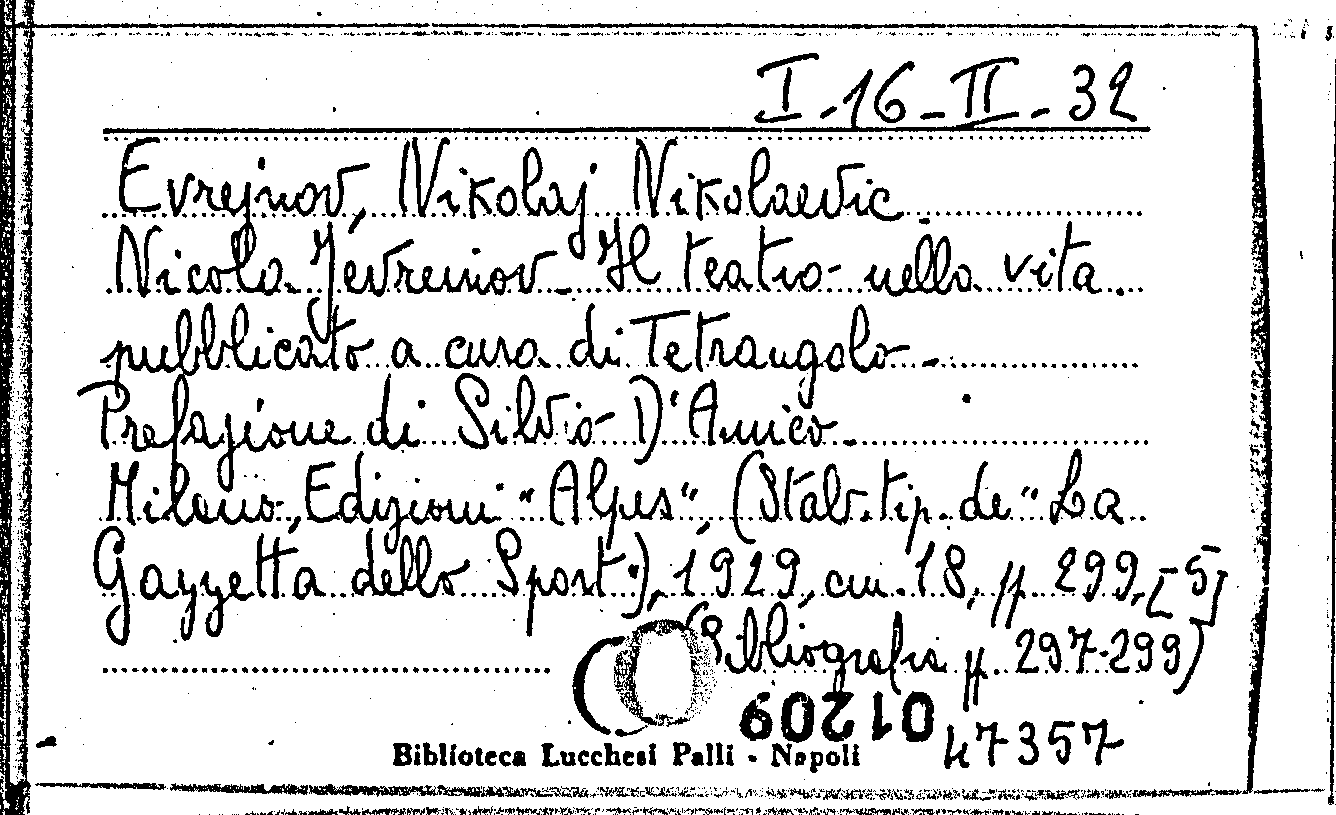 I-16-II-32
Evrejnov, Nikolaj Nikolaevic
Nicola Jevreinov - Il teatro nella vita.
pubblicato a cura di Tetrangolo -
Prefazione di Silvio D'Amico.
Milano, Edizioni "Alpes", (Stab. tip. de "La
Gazzetta dello Sport"), 1929, cm. 18, pp. 299, [5]
(Bibliografia pp. 297-299)
01209
47357
Biblioteca Lucchesi Palli - Napoli